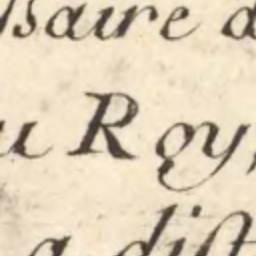 ssaire d
u Roy,
a dist